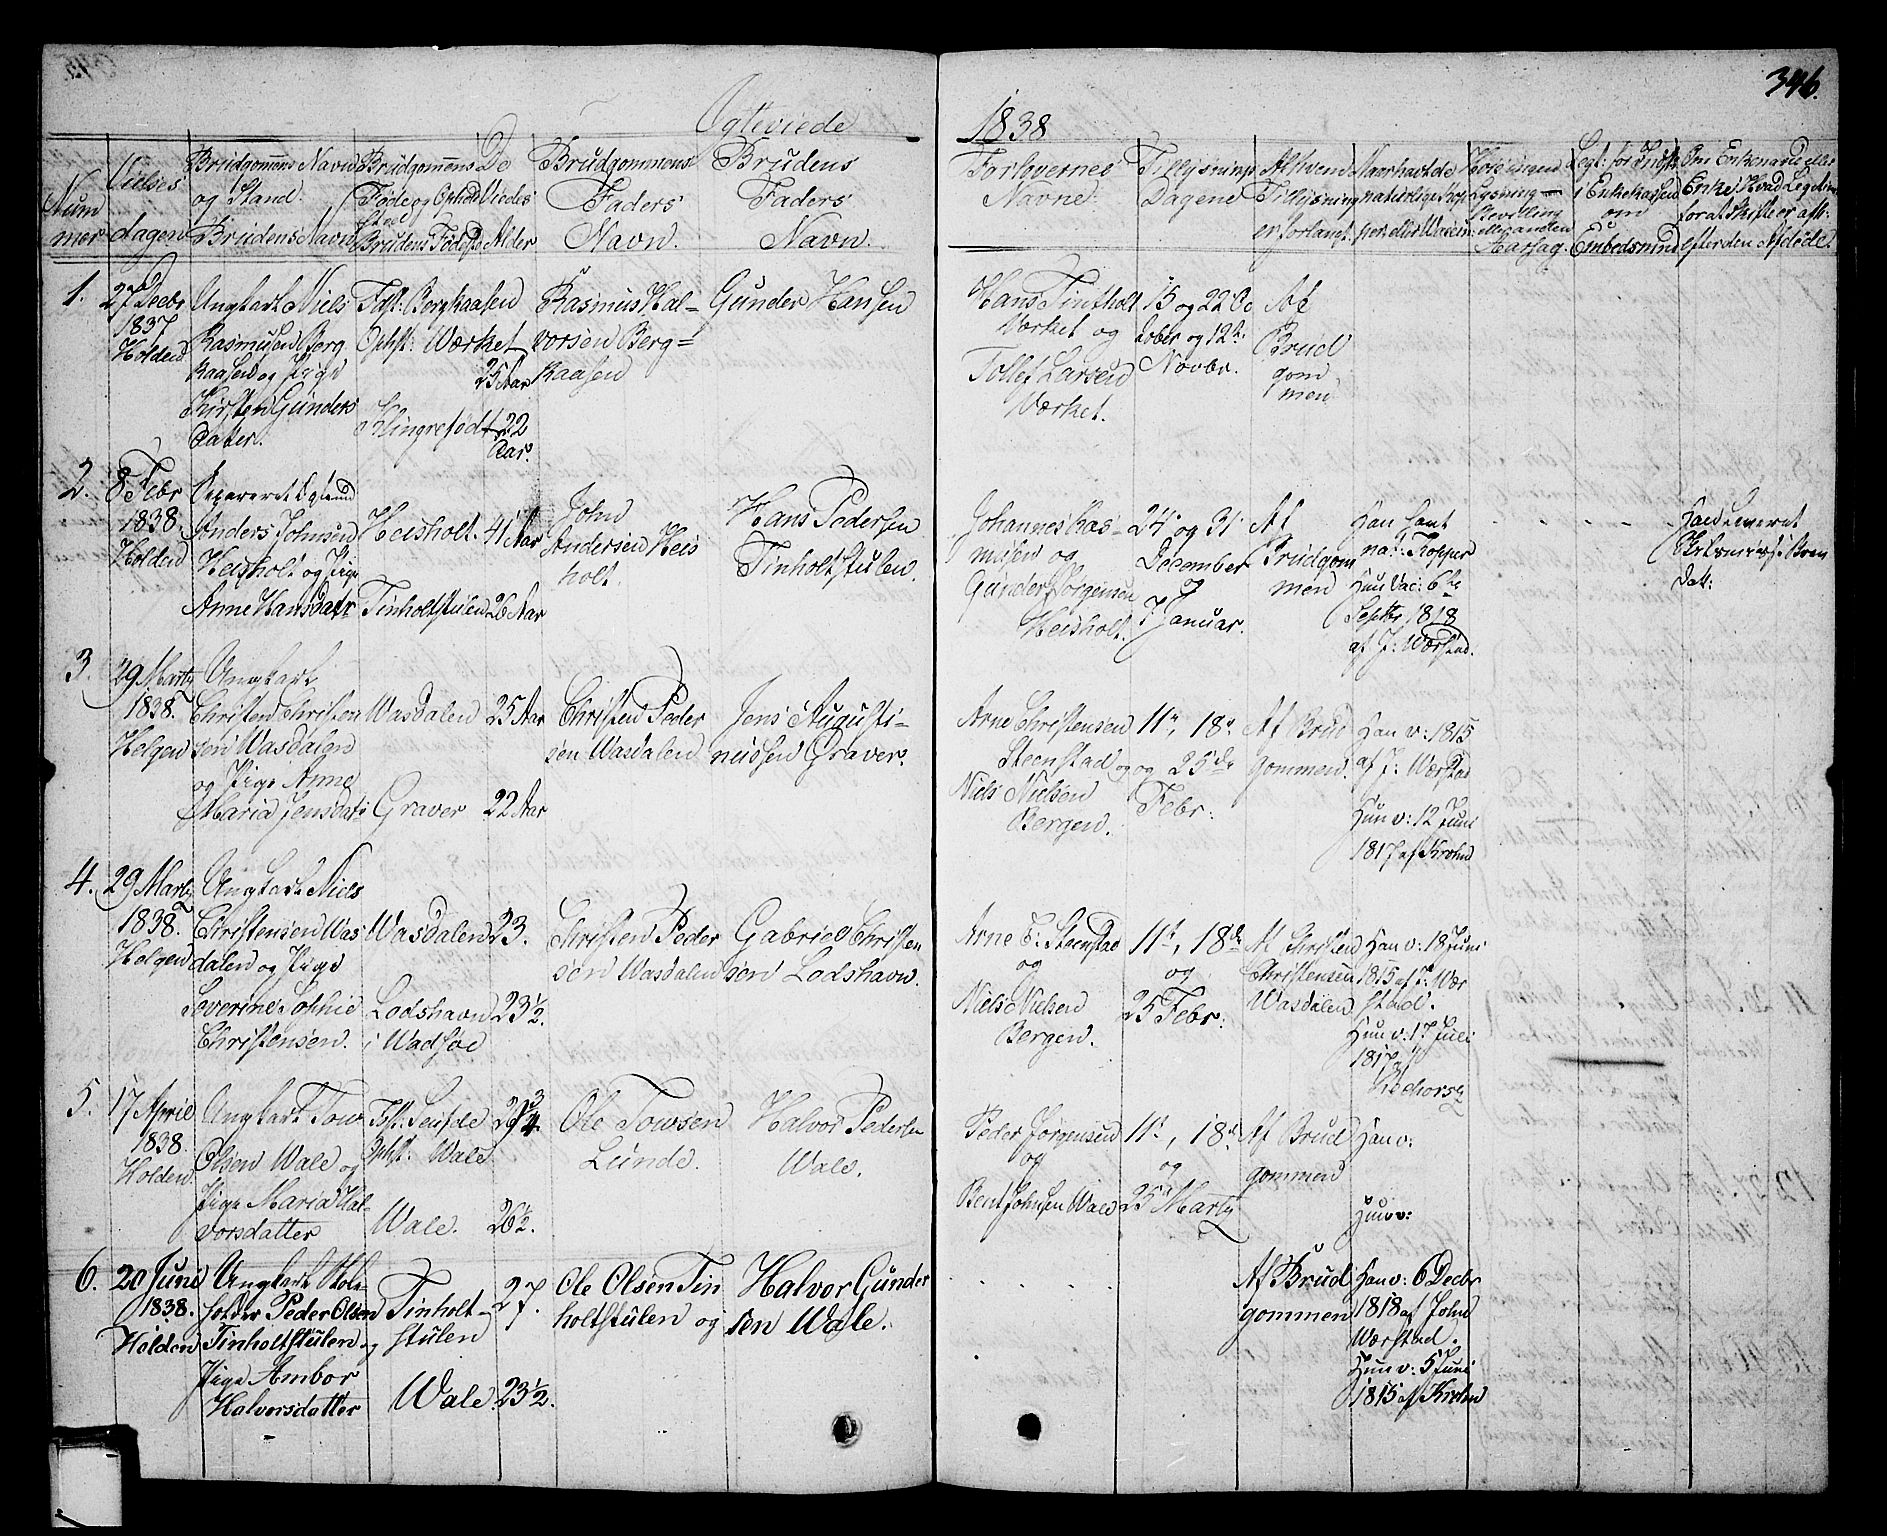 346.
Egteviede
1838
Num
mer
Vielses
dagen
Brudgomens Navn
og Stand.
Brudens Navn
Brudgomens
Føde og Opholds
Sted
Brudens Fødest
De
Viedes
Alder
Brudgommens
Faders
Navn.
Brudens
Faders
Navn.
Forlovernes
Navne.
Tillysnings
Dagene
Af hvem
Tillysning
er forlangt.
Naar havt de
naturlige Kop
per eller Vaccin:
om
Embedsmind
Om Enkemand eller
Enke, Hvad Legitim
for at Skifte er afh:
efter den Afdøde.
1.
27 Decbr
1837
Holden
Ungkarl Niels
Rasmusen Berg
kaasen og Pige
Kirsten Gunders
datter.
Fdst: Bergkaasen
Ophst: Værket
25 Aar
22
Aar.
Rasmus Hal-
vorsen Berg=
kaasen
Gunder Hansen
Hans Tintholt
Værket og
Tollef Larsen
Værket.
15 og 22 Oc
tober og 12te
Novbr.
Af
Brud
gom
men
2.
8 Febr
1838.
Holden
Separeret Egtemd
Anders Johnsen
Heisholt og Pige
Anne Hansdatr
Heisholt.
41 Aar
Tinholtstulen
26 Aar
John
Andersen Heis
holt.
Hans Pedersen
Tinholtstulen.
Johannes Ras=
musen og
Gunder Jørgensen
Heisholt.
24 og 31
December
7 Januar.
Af
Brudgom
men
Han havt
nat: Kopper
Hun Vac: 6te
Septbr 1818
af J: Værstad.
3.
29 Marty
1838.
Helgen
Ungkarl
Christen Christen
sen Wasdalen
og Pige Anne
Maria Jensdatr
Wasdalen
25 Aar
Graver
22 Aar
Christen Peder
sen Wasdalen
Jens Augusti-
nussen Graver.
Arne Christensen
Steenstad og
Niels Nielsen
Bergen.
11te, 18de
og 25de
Febr:
Af Brud
gommen.
Han v: 1815
af J: Værstad
Hun v: 12 Juni
1817 af Krohn
4.
29 Marty
1838.
Helgen
Ungkarl Niels
Christensen Was
dalen og Pige
Severine Sophie
Christensen.
Wasdalen
23.
Lodshavn
i Wadsøe
23½.
Christen Peder
sen Wasdalen
Gabriel Christen
sen Lodshavn.
Arne C: Steenstad
og
Niels Nielsen
Bergen.
11te, 18de
og
25 Febr:
Af Christen
Christensen
Wasdalen
Han v: 18 Juni
1815 af J: Vær
stad.
Hun v: 17 Juli
5.
17 April
1838.
Holden.
Ungkarl Tow
Olsen Wale og
Pige Maria Hal-
vorsdatter
Ophst: Wale
Wale.
26½.
Ole Towsen
Lunde.
Halvor Pedersen
Wale.
Peder Jørgensen
og
Bent Johnsen Wale
11te, 18de
og
25d Marty
Af Brud
gommen
Han v:
Hun v:
6.
20 Juni
1838.
Holden
Ungkarl Hol-
Peder Olsen
Tinholtstulen og
Pige Ambor
Halvorsdatter
Tinholt-
stulen
27.
Wale.
23½.
Ole Olsen Tin
holtstulen og
Halvor Gunder
sen Wale.
Af Brud
gommen
Han v: 6 Decbr
1818 af John
Værstad.
Hun v: 5 Juni
1815 af Krohn